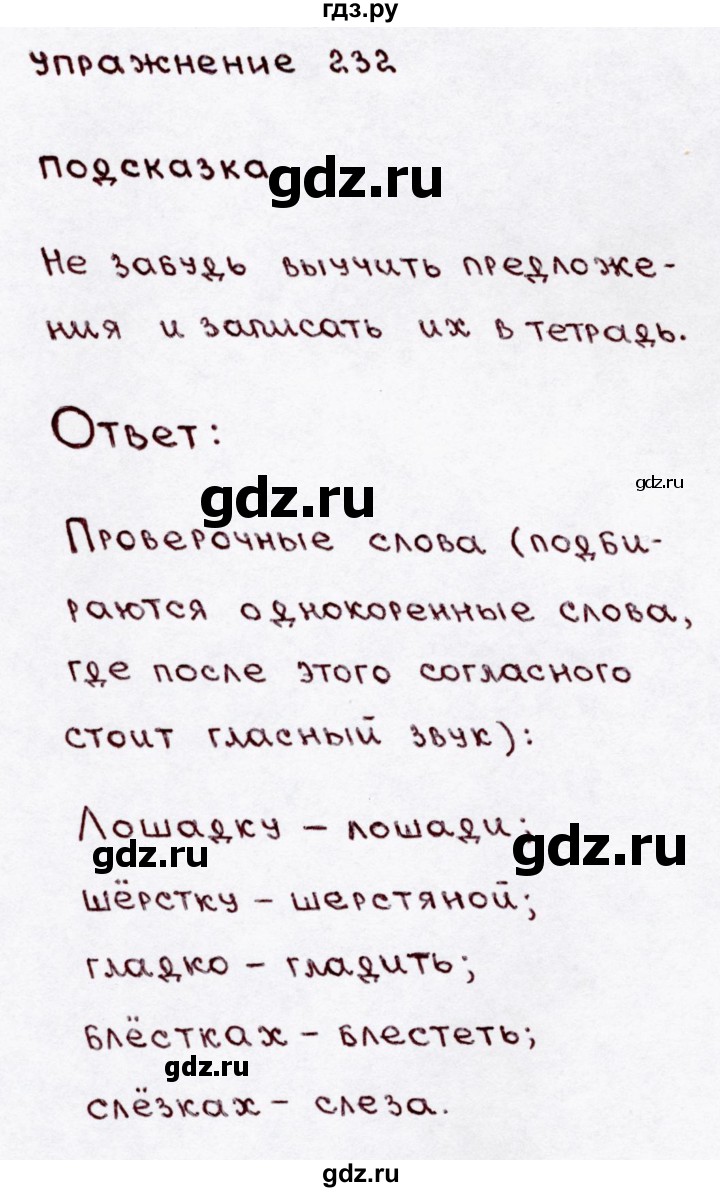 гдз.ру
Упражнение 232
Подсказка
gdz.ru
Не забудь выучить предложе-
ния и записать их в тетрадь.
Ответ:
gdz.ru
gdz.ru
Проверочные слова (подби-
раются однокоренные слова,
где после этого согласного
стоит гласный звук):
Лошадку – лошади;
gdz.ru
gdz.ru
шёрстку – шерстяной;
гладко – гладить;
блёстках – блестеть;
gdz.ru
слёзках – слеза.
gdz.ru